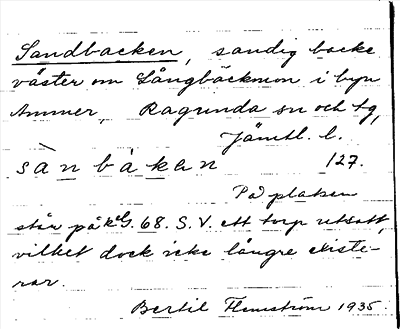 Sandbacken, sandig backe
väster om Långbäckmon i byn
Ammer, Ragunda sn och tg,
Jämtl. l.
sànbàkən 127.
På platsen
står på k. G. 68. S. V. ett torp utsatt,
vilket dock icke längre existe-
rar.
Bertil Flemström 1935